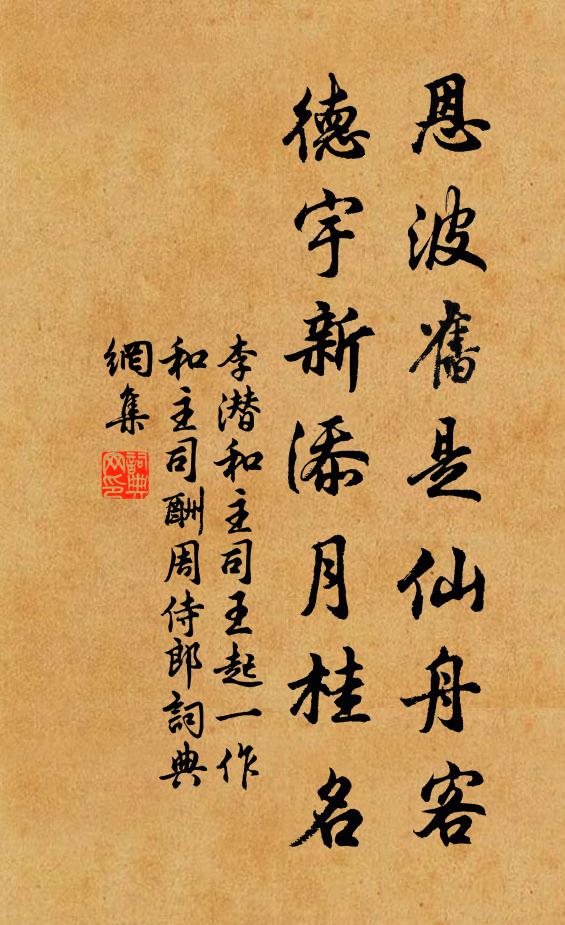 恩波舊是仙舟客
德宇新添月桂名
李潛和主司王起一作
和主司酬周侍郎詞典
網集
詞典網印